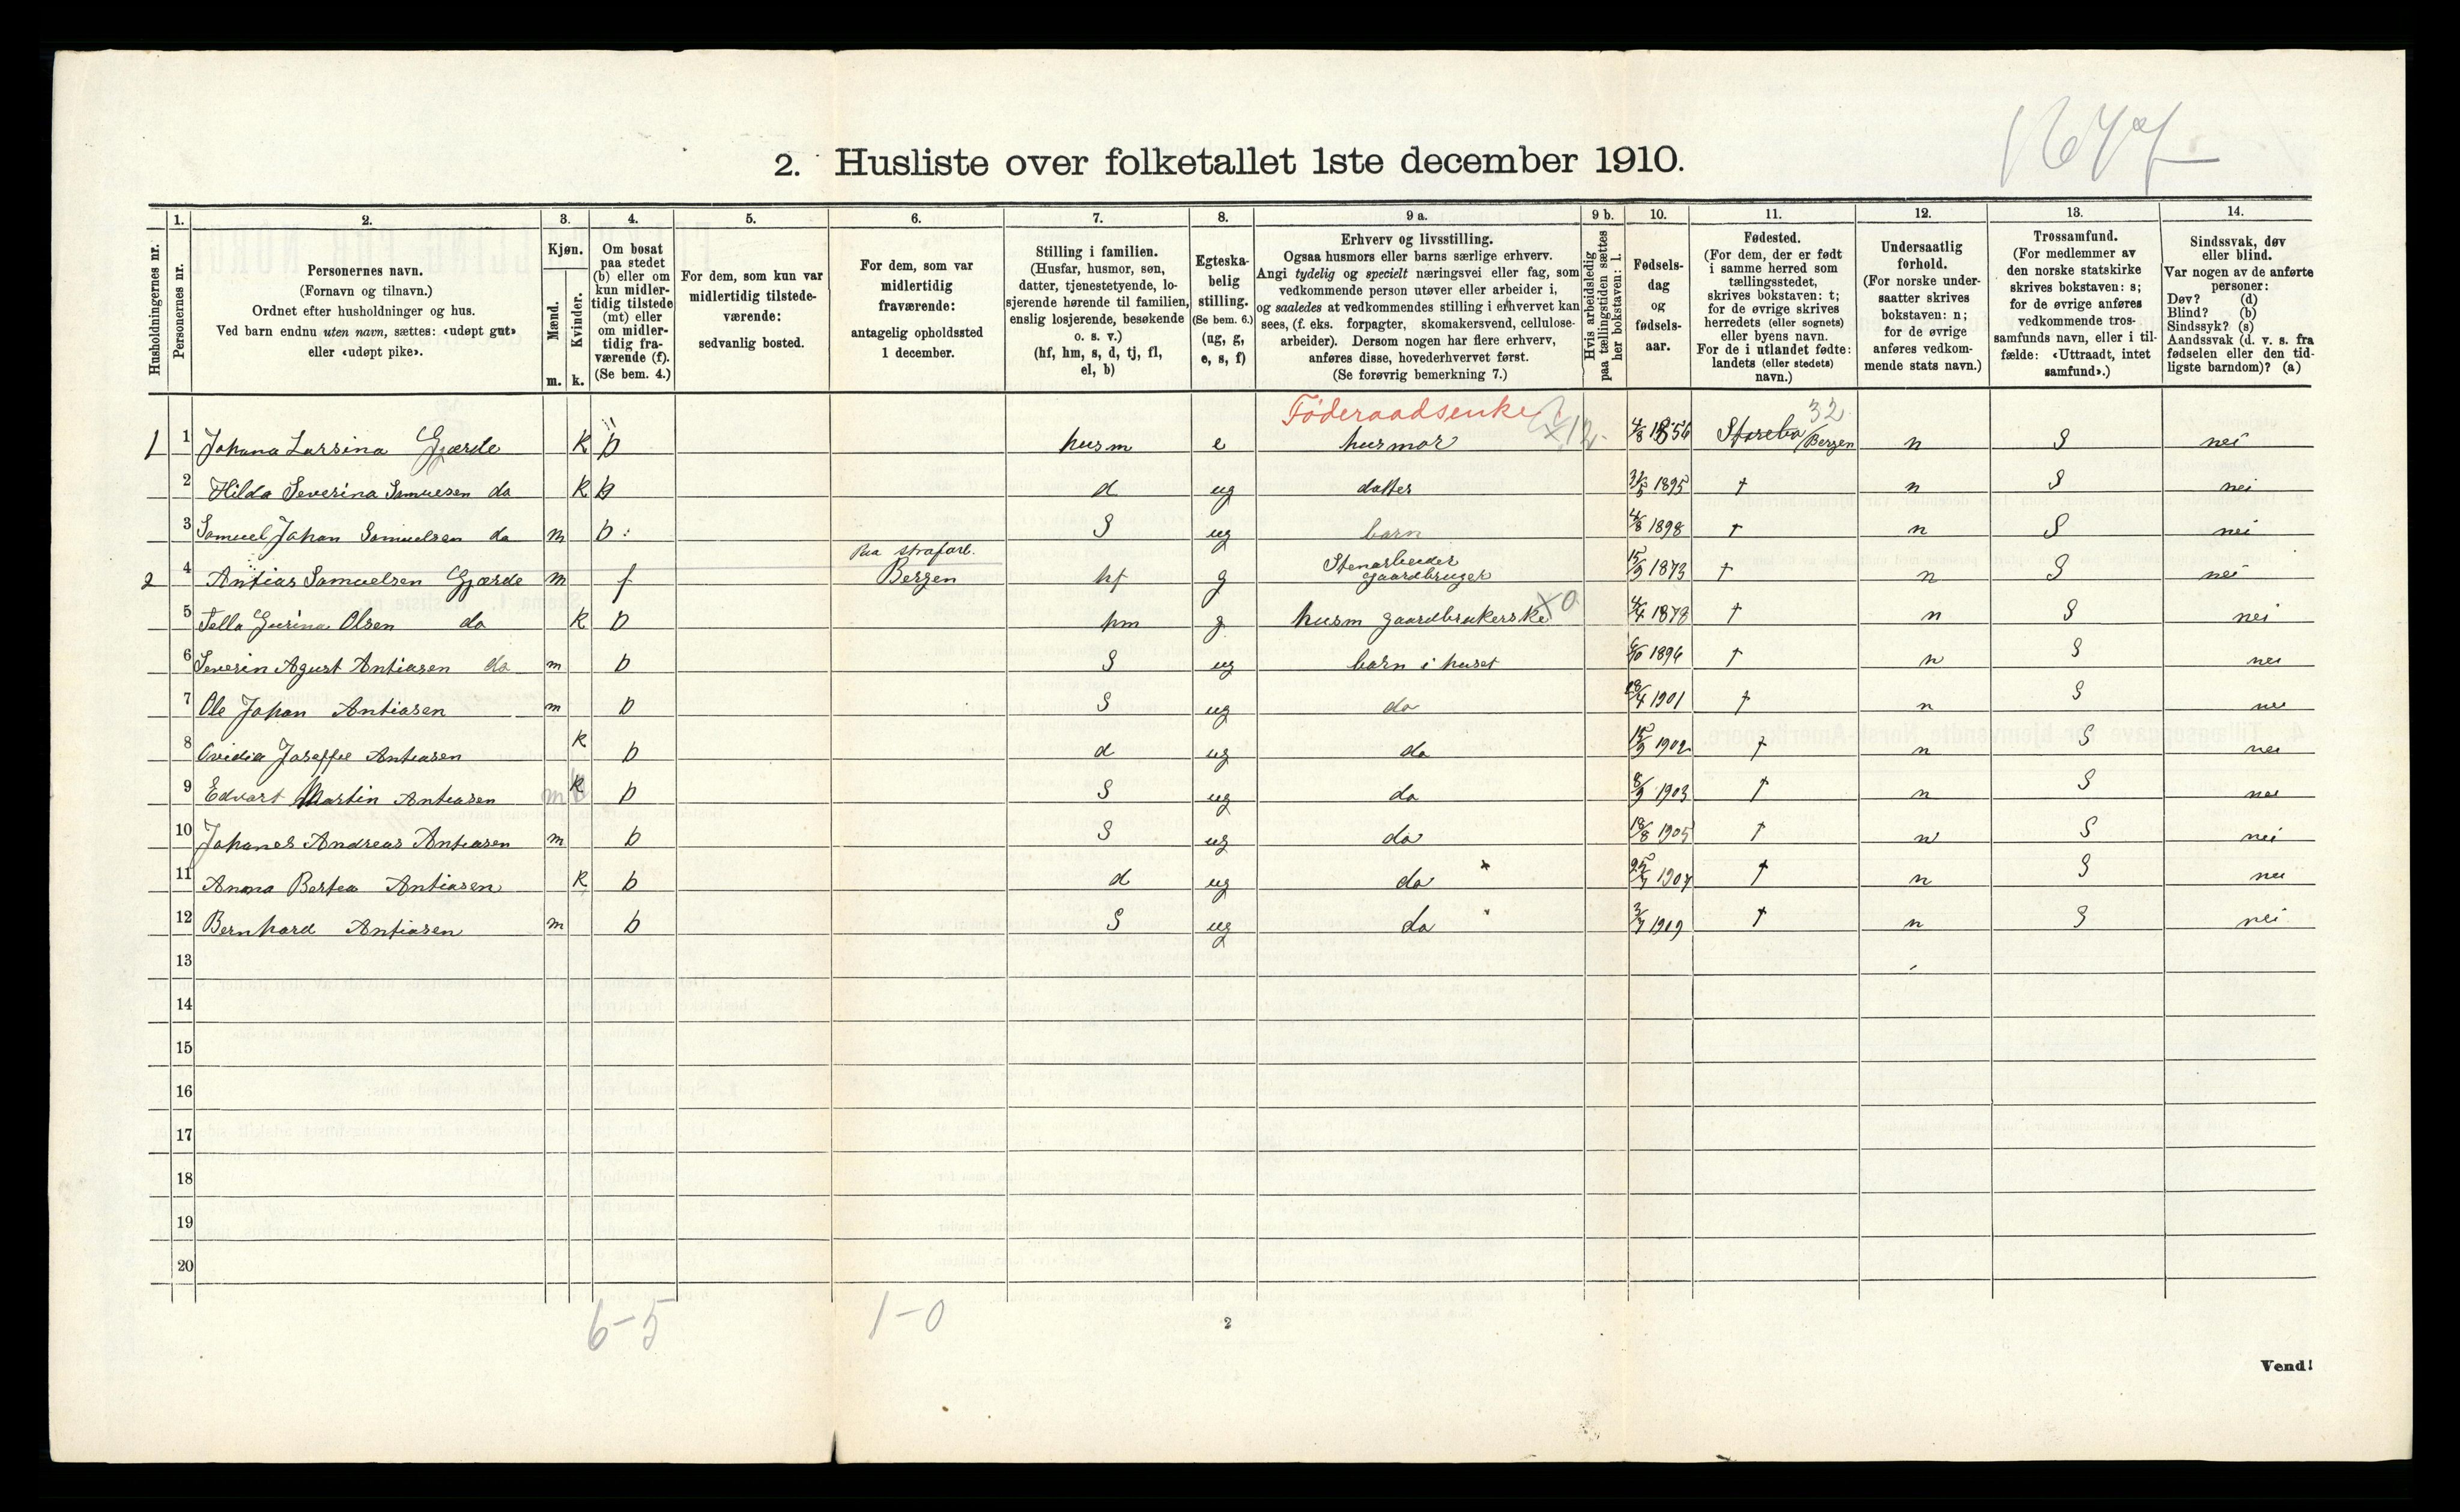 2. Husliste over folketallet 1ste december 1910.
Husholdningernes nr.
1.
Personernes nr.
2.
Personernes navn.
(Fornavn og tilnavn.)
Ordnet efter husholdninger og hus.
Ved barn endnu uten navn, sættes: «udøpt gut»
eller «udøpt pike».
3.
Kjøn.
Mænd.
Kvinder.
m. k.
4.
Om bosat
paa stedet
(b) eller om
kun midler-
tidig tilstede
(mt) eller
om midler-
tidig fra-
værende (f).
(Se bem. 4.)
5.
For dem, som kun var
midlertidig tilstede-
værende:
sedvanlig bosted.
6.
For dem, som var
midlertidig
fraværende:
antagelig opholdssted
1 december.
7.
Stilling i familien.
(Husfar, husmor, søn,
datter, tjenestetyende, lo-
sjerende hørende til familien,
enslig losjerende, besøkende
o. s. v.)
(hf, hm, s, d, tj, fl,
el, b)
8.
Egteska-
belig
stilling.
(Se bem. 6.)
(ug, g,
e, s, f)
9 a.
Erhverv og livsstilling.
Ogsaa husmors eller barns særlige erhverv.
Angi tydelig og specielt næringsvei eller fag, som
vedkommende person utøver eller arbeider i,
og saaledes at vedkommendes stilling i erhvervet kan
sees, (f. eks. forpagter, skomakersvend, cellulose-
arbeider). Dersom nogen har flere erhverv,
anføres disse, hovederhvervet først.
(Se forøvrig bemerkning 7.)
9 b.
Hvis arbeidsledig
paa tællingstiden sættes
her bokstaven: l.
10.
Fødsels-
dag
og
fødsels-
aar.
11.
Fødested.
(For dem, der er født
i samme herred som
tællingsstedet,
skrives bokstaven: t;
for de øvrige skrives
herredets (eller sognets)
eller byens navn.
For de i utlandet fødte:
landets (eller stedets)
navn.)
12.
Undersaatlig
forhold.
(For norske under-
saatter skrives
bokstaven: n;
for de øvrige
anføres vedkom-
mende stats navn.)
13.
Trossamfund.
(For medlemmer av
den norske statskirke
skrives bokstaven: s;
for de øvrige anføres
vedkommende tros-
samfunds navn, eller i til-
fælde: «Uttraadt, intet
samfund».)
14.
Sindssvak, døv
eller blind.
Var nogen av de anførte
personer:
Døv? (d)
Blind? (b)
Sindssyk? (s)
Aandssvak (d. v. s. fra
fødselen eller den tid-
ligste barndom)? (a)
Føderaadsenke 32
1 1 Johana Larsina Gjærde k b husm e husmor 4/8 1856 Storebø/Bergen n S nei
2 Hilda Severina Samuesen do k b d ug datter 31/5 1895 t n S nei
3 Samuel Johan Samuelsen do m b S ug barn 4/8 1898 t n S nei
Paa strafarb. Stenarbeider
2 4 Antias Samuelsen Gjærde m f Bergen hf g gaardbruger 15/9 1873 t n S nei
5 Tella Gurina Olsen do k b hm g husm gaardbrukerske x 0 4/4 1878 t n S nei
6 Severin Agust Antiasen do m b S ug barn i huset 6/10 1896 t n S nei
7 Ole Johan Antiasen m b S ug do 28/4 1901 t n S nei
8 Ovidia Joseffie Antiasen k b d ug do 15/9 1902 t n S nei
9 Edvart Martin Antiasen m k b S ug do 8/9 1903 t n S nei
10 Johanes Andreas Antiasen m b S ug do 18/8 1905 t n S nei
11 Anna Bertea Antiasen k b d ug do 25/7 1907 t n S nei
12 Bernhard Antiasen m b S ug do 3/7 1909 t n S nei
13
14
15
16
17
18
19
20
6-5 1-0
2
Vend!